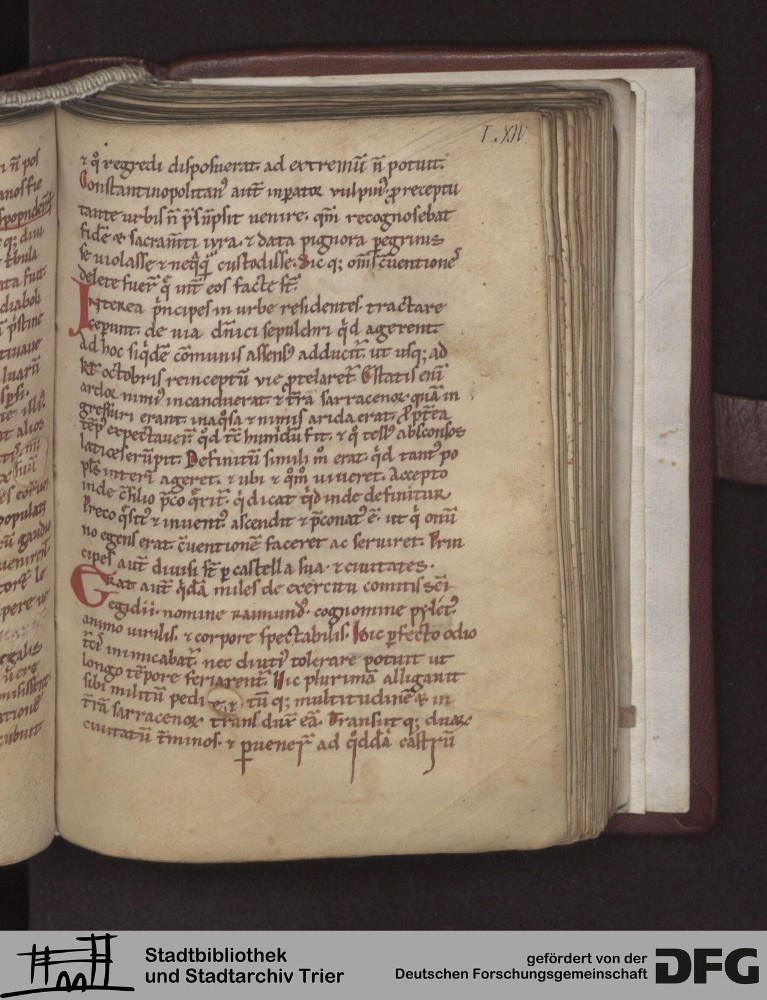 I. XIV
⁊ q̊ regredi disposuerat. ad extremū ñ potuit.
Constantinopolitan᷒ aut̄ inpator vulpin᷒. p̄receptu
tante urbis ñ p̄sūpsit uenire. qm̄ recognoscebat
fidē & sacram̄ti iura. ⁊ data pignora pegrinis
se uiolasse ⁊ neq̄q̄ custodisse. Sic q; om̄s cuentiones
delete fuer̄ q̄ int̄ eos facte st̄.
Interea p̄ncipes in urbe residentes. tractare
ceperunt. de uia dn̄ici sepulchri q̄d agerent
ad hoc siq̄dē cōmunis assens᷒ adducit̄. ut usq; ad
kl̄ octobris reinceptū vie ptelaret̄ Estatis eni
ardor nimi᷒ incanduerat ⁊ t̄rā sarracenoꝝ quā in
gressuri erant. inaq̊sa ⁊ nimis arida erat. Propt̄ea
tēp᷒ expectauer̄ q̊d tc̄ humidū fit. ⁊ q̊ tell᷒ absconsos
latices erūpit. Definitū simili m̊ erat. q̄d tant᷒ po
pl̄s interī ageret. ⁊ ubi ⁊ q̊m̊ uiueret. Accepto
inde c̄silio p̄co q̄rit̄. q̄ dicat q̄d inde definitur
Preco q̄sit᷒ ⁊ inuent᷒. ascendit ⁊ p̄conat᷒ ē. ut q̄ om̄i
no egens erat c̄uentionē faceret ac seruiret. Prin
cipes aut̄ diuisi st̄ p castella sua. ⁊ ciuitates.
Erat aut̄ q̄dā miles de exercitu comitis sc̄i
egidii. nomine raimund᷒. cognomine pylet᷒.
animo uirilis. ⁊ corpore spectabilis. Hic pfecto odio
tc̄is inimicabat̄. nec diuti᷒ tolerare potuit ut
longo tēpore feriarent̄. Hic plurimā alligauit
sibi militū pedi tū q; multitudinē & in
t̄rā sarracenoꝝ transduxit eā. Transiit q; duaꝝ
ciuitatū t̄minos. ⁊ puener̄ ad q̊ddā castrū
Stadtbibliothek
und Stadtarchiv Trier
gefördert von der
Deutschen Forschungsgemeinschaft
DFG